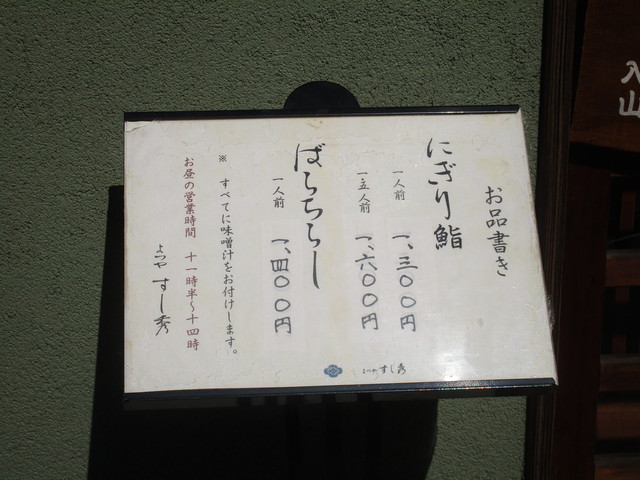 お品書き
にぎり鮨
一人前 一、三〇〇円
一五人前 一、六〇〇円
ばらちらし
一人前 一、四〇〇円
※ すべてに味噌汁をお付けします。
お昼の営業時間 十一時半～十四時
よつや すし秀
よつや すし秀
入
山